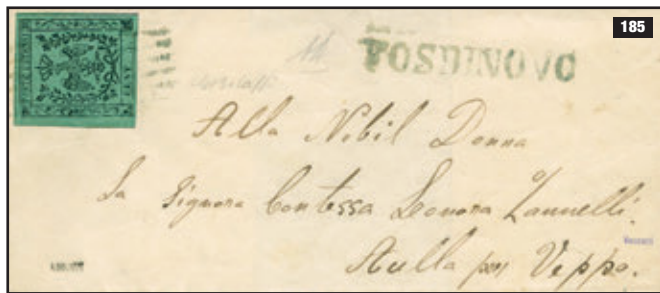 185
FOSDINOVO
Alla Nobil Donna
La Signora Contessa Leonora Zannelli.
Aulla per Veppo.